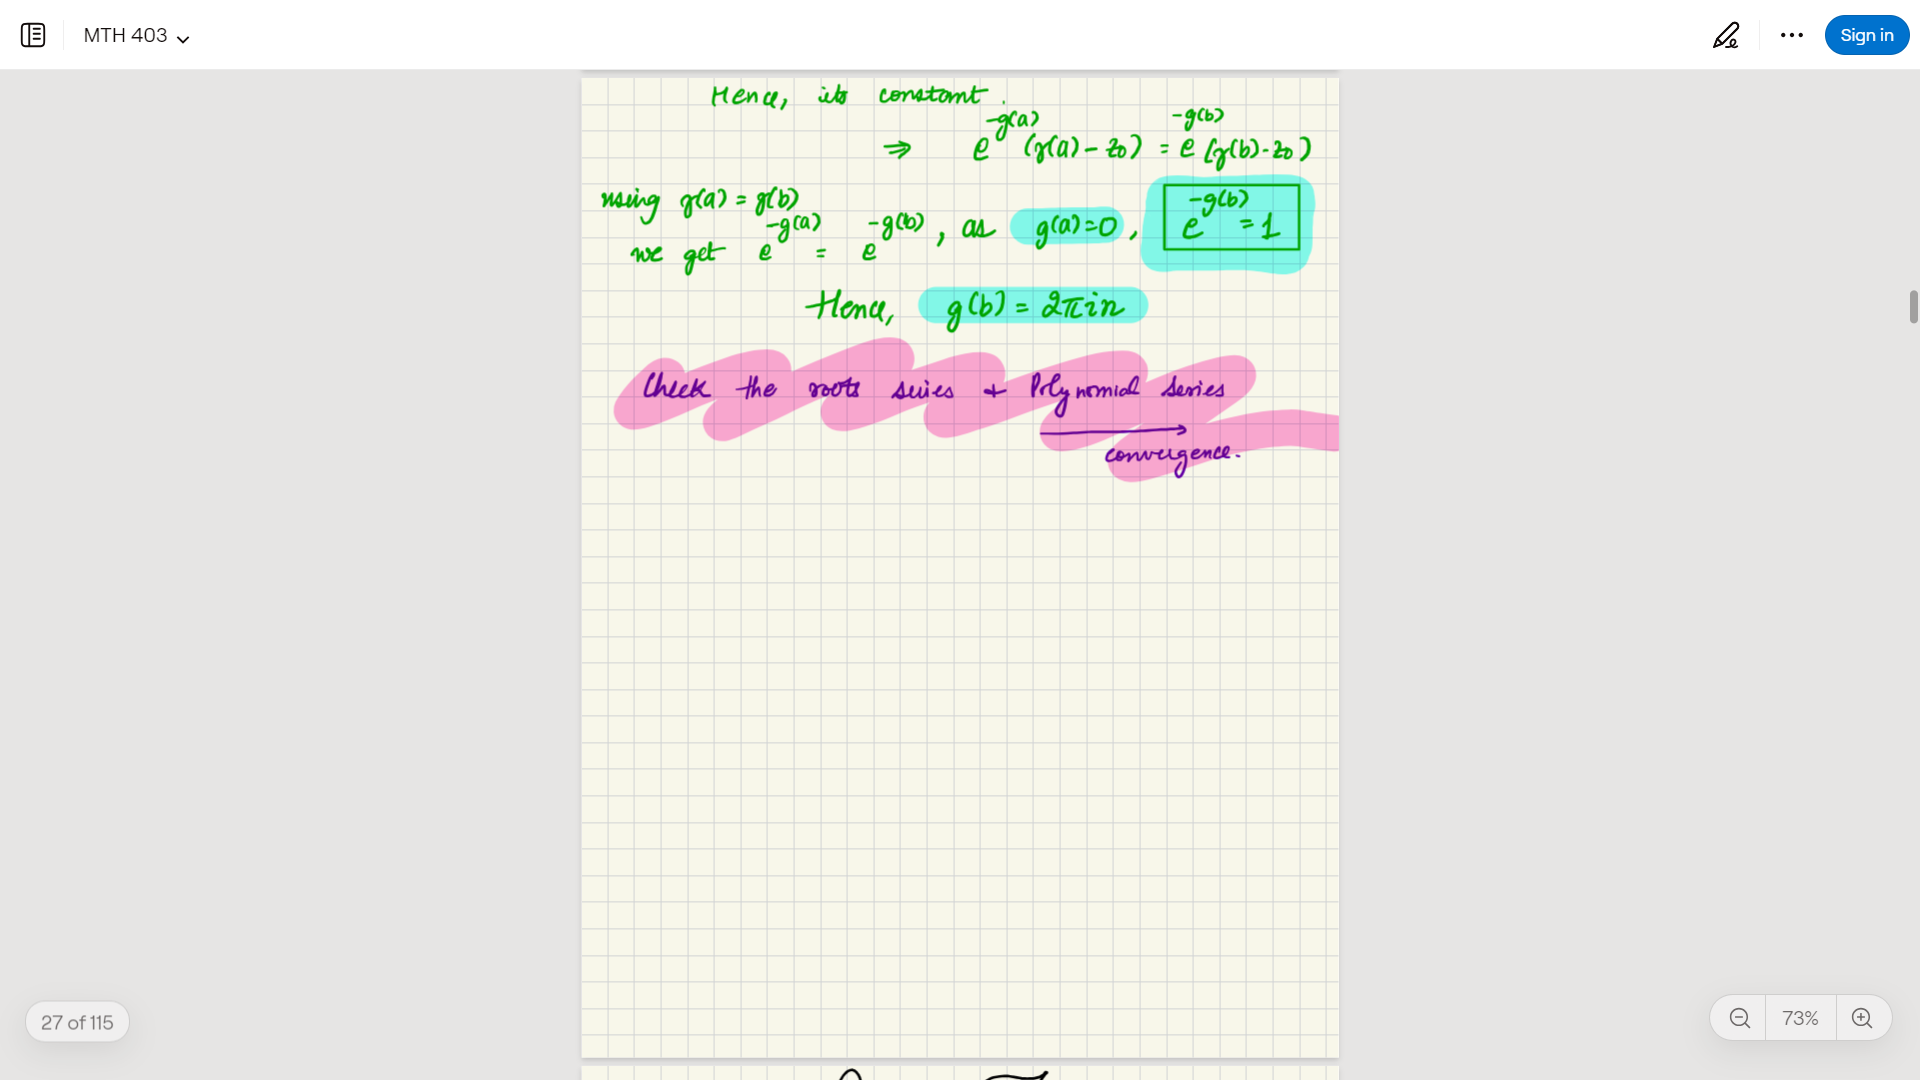 MTH 403
Sign in
Hence, its constant.
⇒ e^{-g(a)} (γ(a) - z₀) = e^{-g(b)} (γ(b) - z₀)
using γ(a) = γ(b)
we get e^{-g(a)} = e^{-g(b)}, as g(a)=0, e^{-g(b)} = 1
Hence, g(b) = 2πin
Check the roots series & Polynomial series
convergence.
27 of 115
73%